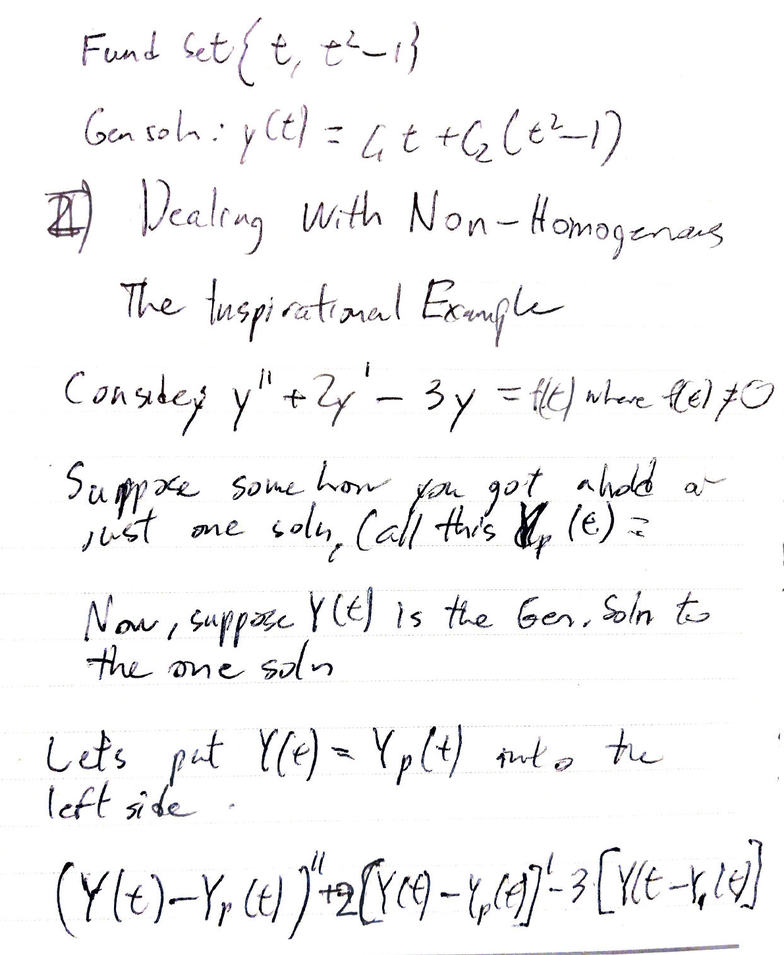 Fund Set { t, t²-1}
Gen soln: y(t) = C₁ t + C₂ (t²-1)
II) Dealing With Non-Homogenous
The Inspirational Example
Consider y'' + 2y' - 3y = f(t) where f(t) ≠ 0
Suppose some how you got ahold
just one soln, Call this Yₚ (t) =
Now, suppose Y(t) is the Gen. Soln to
the one soln
Let's put Y(t) = Yₚ(t) into the
left side.
(Y(t)-Yₚ(t))''+2[Y(t)-Yₚ(t)]'-3[Y(t-Yₚ(t)]